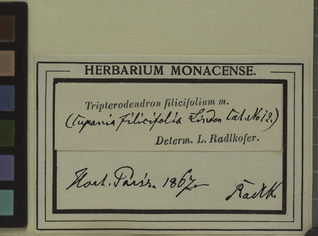 HERBARIUM MONACENSE.
Tripterodendron filicifolium m.
(Cupania filicifolia Linden Cat. No 12.)
Determ. L. Radlkofer.
Hort. Paris. 1867
Radlk.